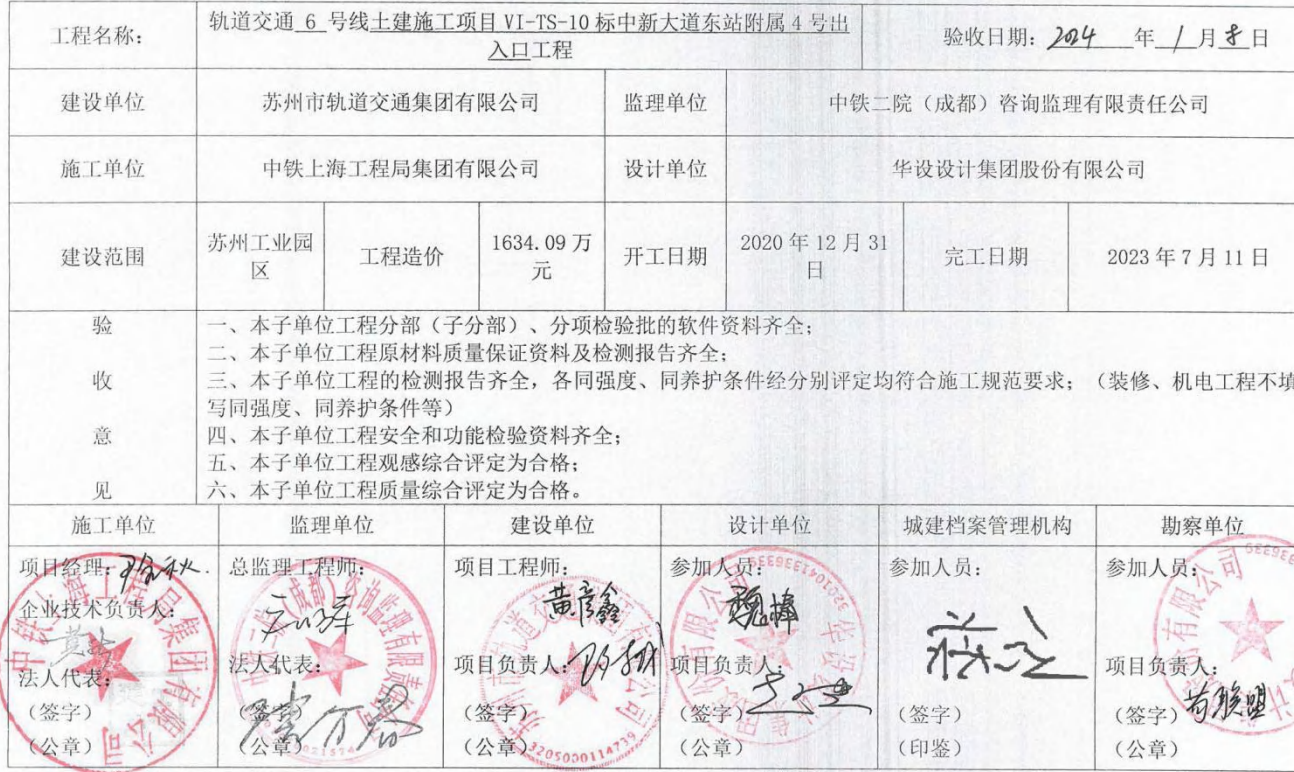 工程名称:
轨道交通 6 号线土建施工项目 VI-TS-10 标中新大道东站附属 4 号出
入口工程
验收日期: 2024 年 1 月 8 日
建设单位
苏州市轨道交通集团有限公司
监理单位
中铁二院（成都）咨询监理有限责任公司
施工单位
中铁上海工程局集团有限公司
设计单位
华设设计集团股份有限公司
建设范围
苏州工业园
区
工程造价
1634.09 万
元
开工日期
2020 年 12 月 31
日
完工日期
2023 年 7 月 11 日
验
收
意
见
一、本子单位工程分部（子分部）、分项检验批的软件资料齐全；
二、本子单位工程原材料质量保证资料及检测报告齐全；
三、本子单位工程的检测报告齐全，各同强度、同养护条件经分别评定均符合施工规范要求；（装修、机电工程不填
写同强度、同养护条件等）
四、本子单位工程安全和功能检验资料齐全；
五、本子单位工程观感综合评定为合格；
六、本子单位工程质量综合评定为合格。
施工单位
监理单位
建设单位
设计单位
城建档案管理机构
勘察单位
项目经理:
企业技术负责人:
法人代表:
（签字）
（公章）
总监理工程师:
法人代表:
（签字）
（公章）
项目工程师:
黄彦鑫
项目负责人:
（签字）
（公章）
3205000114739
参加人员:
魏樟
项目负责人:
（签字）
（公章）
参加人员:
（签字）
（印鉴）
参加人员:
项目负责人:
（签字）
（公章）